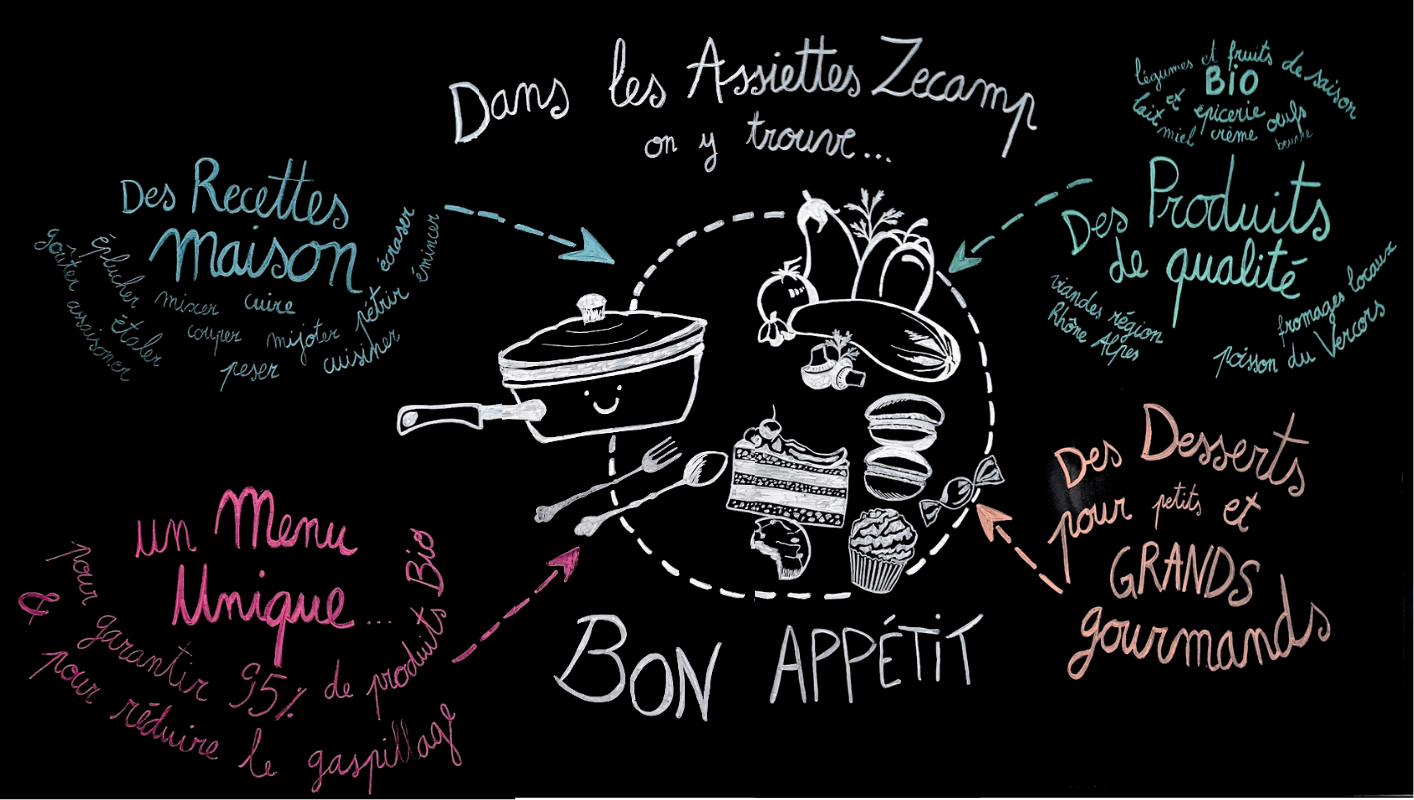 Dans les Assiettes Zecamp
on y trouve...
Des Recettes
maison
écraser
émincer
éplucher
goûter
assaisonner
étaler
mixer
cuire
couper
mijoter
pétrir
peser
cuisiner
légumes et fruits de saison
BiO
et épicerie
lait miel crème œufs
Des Produits
de qualité
viandes région
Rhône Alpes
fromages locaux
poisson du Vercors
un Menu
Unique...
pour garantir 95% de produits Bio
& pour réduire le gaspillage
Des Desserts
pour petits et
GRANDS
gourmands
BON APPÉTIT